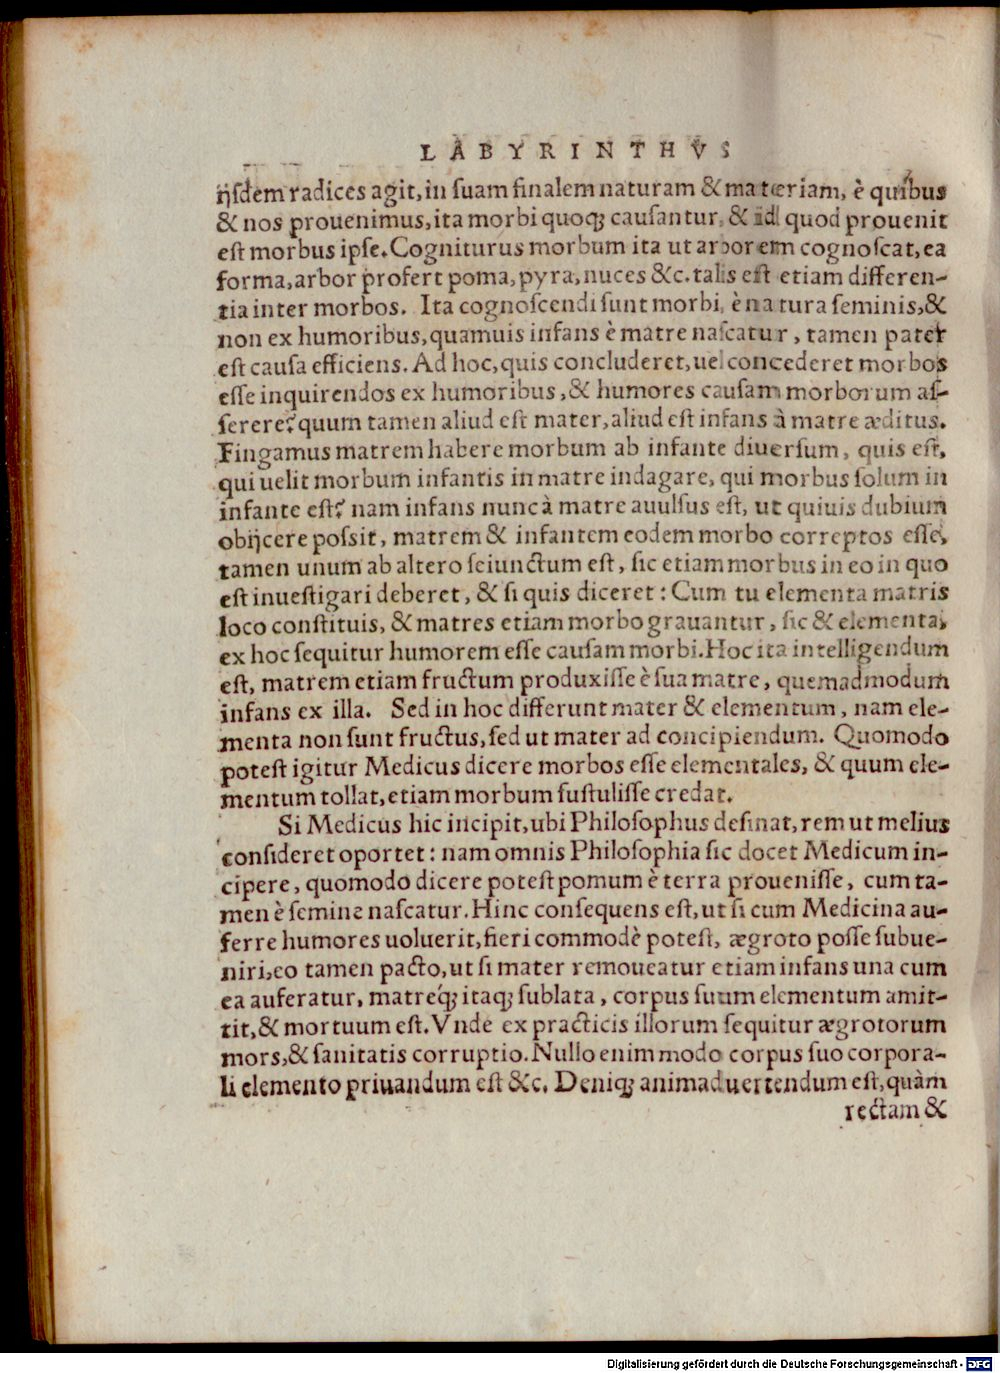 LABYRINTHVS
ijsdem radices agit, in ſuam finalem naturam & matæriam, è quibus
& nos prouenimus, ita morbi quoq; cauſantur, & id quod prouenit
eſt morbus ipſe. Cogniturus morbum ita ut arborem cognoſcat, ea
forma, arbor profert poma, pyra, nuces &c. talis eſt etiam differen-
tia inter morbos. Ita cognoſcendi ſunt morbi, è natura ſeminis, &
non ex humoribus, quamuis infans è matre naſcatur, tamen pater
eſt cauſa efficiens. Ad hoc, quis concluderet, uel concederet morbos
eſſe inquirendos ex humoribus, & humores cauſam morborum aſ-
ſerere? quum tamen aliud eſt mater, aliud eſt infans à matre æditus.
Fingamus matrem habere morbum ab infante diuerſum, quis eſt,
qui uelit morbum infantis in matre indagare, qui morbus ſolum in
infante eſt? nam infans nunc à matre auulſus eſt, ut quiuis dubium
obijcere poſsit, matrem & infantem eodem morbo correptos eſſe,
tamen unum ab altero ſeiunctum eſt, ſic etiam morbus in eo in quo
eſt inueſtigari deberet, & ſi quis diceret: Cum tu elementa matris
loco conſtituis, & matres etiam morbo grauantur, ſic & elementa,
ex hoc ſequitur humorem eſſe cauſam morbi. Hoc ita intelligendum
eſt, matrem etiam fructum produxiſſe è ſua matre, quemadmodum
infans ex illa. Sed in hoc differunt mater & elementum, nam ele-
menta non ſunt fructus, ſed ut mater ad concipiendum. Quomodo
poteſt igitur Medicus dicere morbos eſſe elementales, & quum ele-
mentum tollat, etiam morbum ſuſtuliſſe credat.
Si Medicus hic incipit, ubi Philoſophus deſinat, rem ut melius
conſideret oportet: nam omnis Philoſophia ſic docet Medicum in-
cipere, quomodo dicere poteſt pomum è terra proueniſſe, cum ta-
men è ſemine naſcatur. Hinc conſequens eſt, ut ſi cum Medicina au-
ferre humores uoluerit, fieri commodè poteſt, ægroto poſſe ſubue-
niri, eo tamen pacto, ut ſi mater remoueatur etiam infans una cum
ea auferatur, matreq́; itaq; ſublata, corpus ſuum elementum amit-
tit, & mortuum eſt. Vnde ex practicis illorum ſequitur ægrotorum
mors, & ſanitatis corruptio. Nullo enim modo corpus ſuo corpora-
li elemento priuandum eſt &c. Deniq; animaduertendum eſt, quàm
rectam &
Digitalisierung gefördert durch die Deutsche Forschungsgemeinschaft - DFG